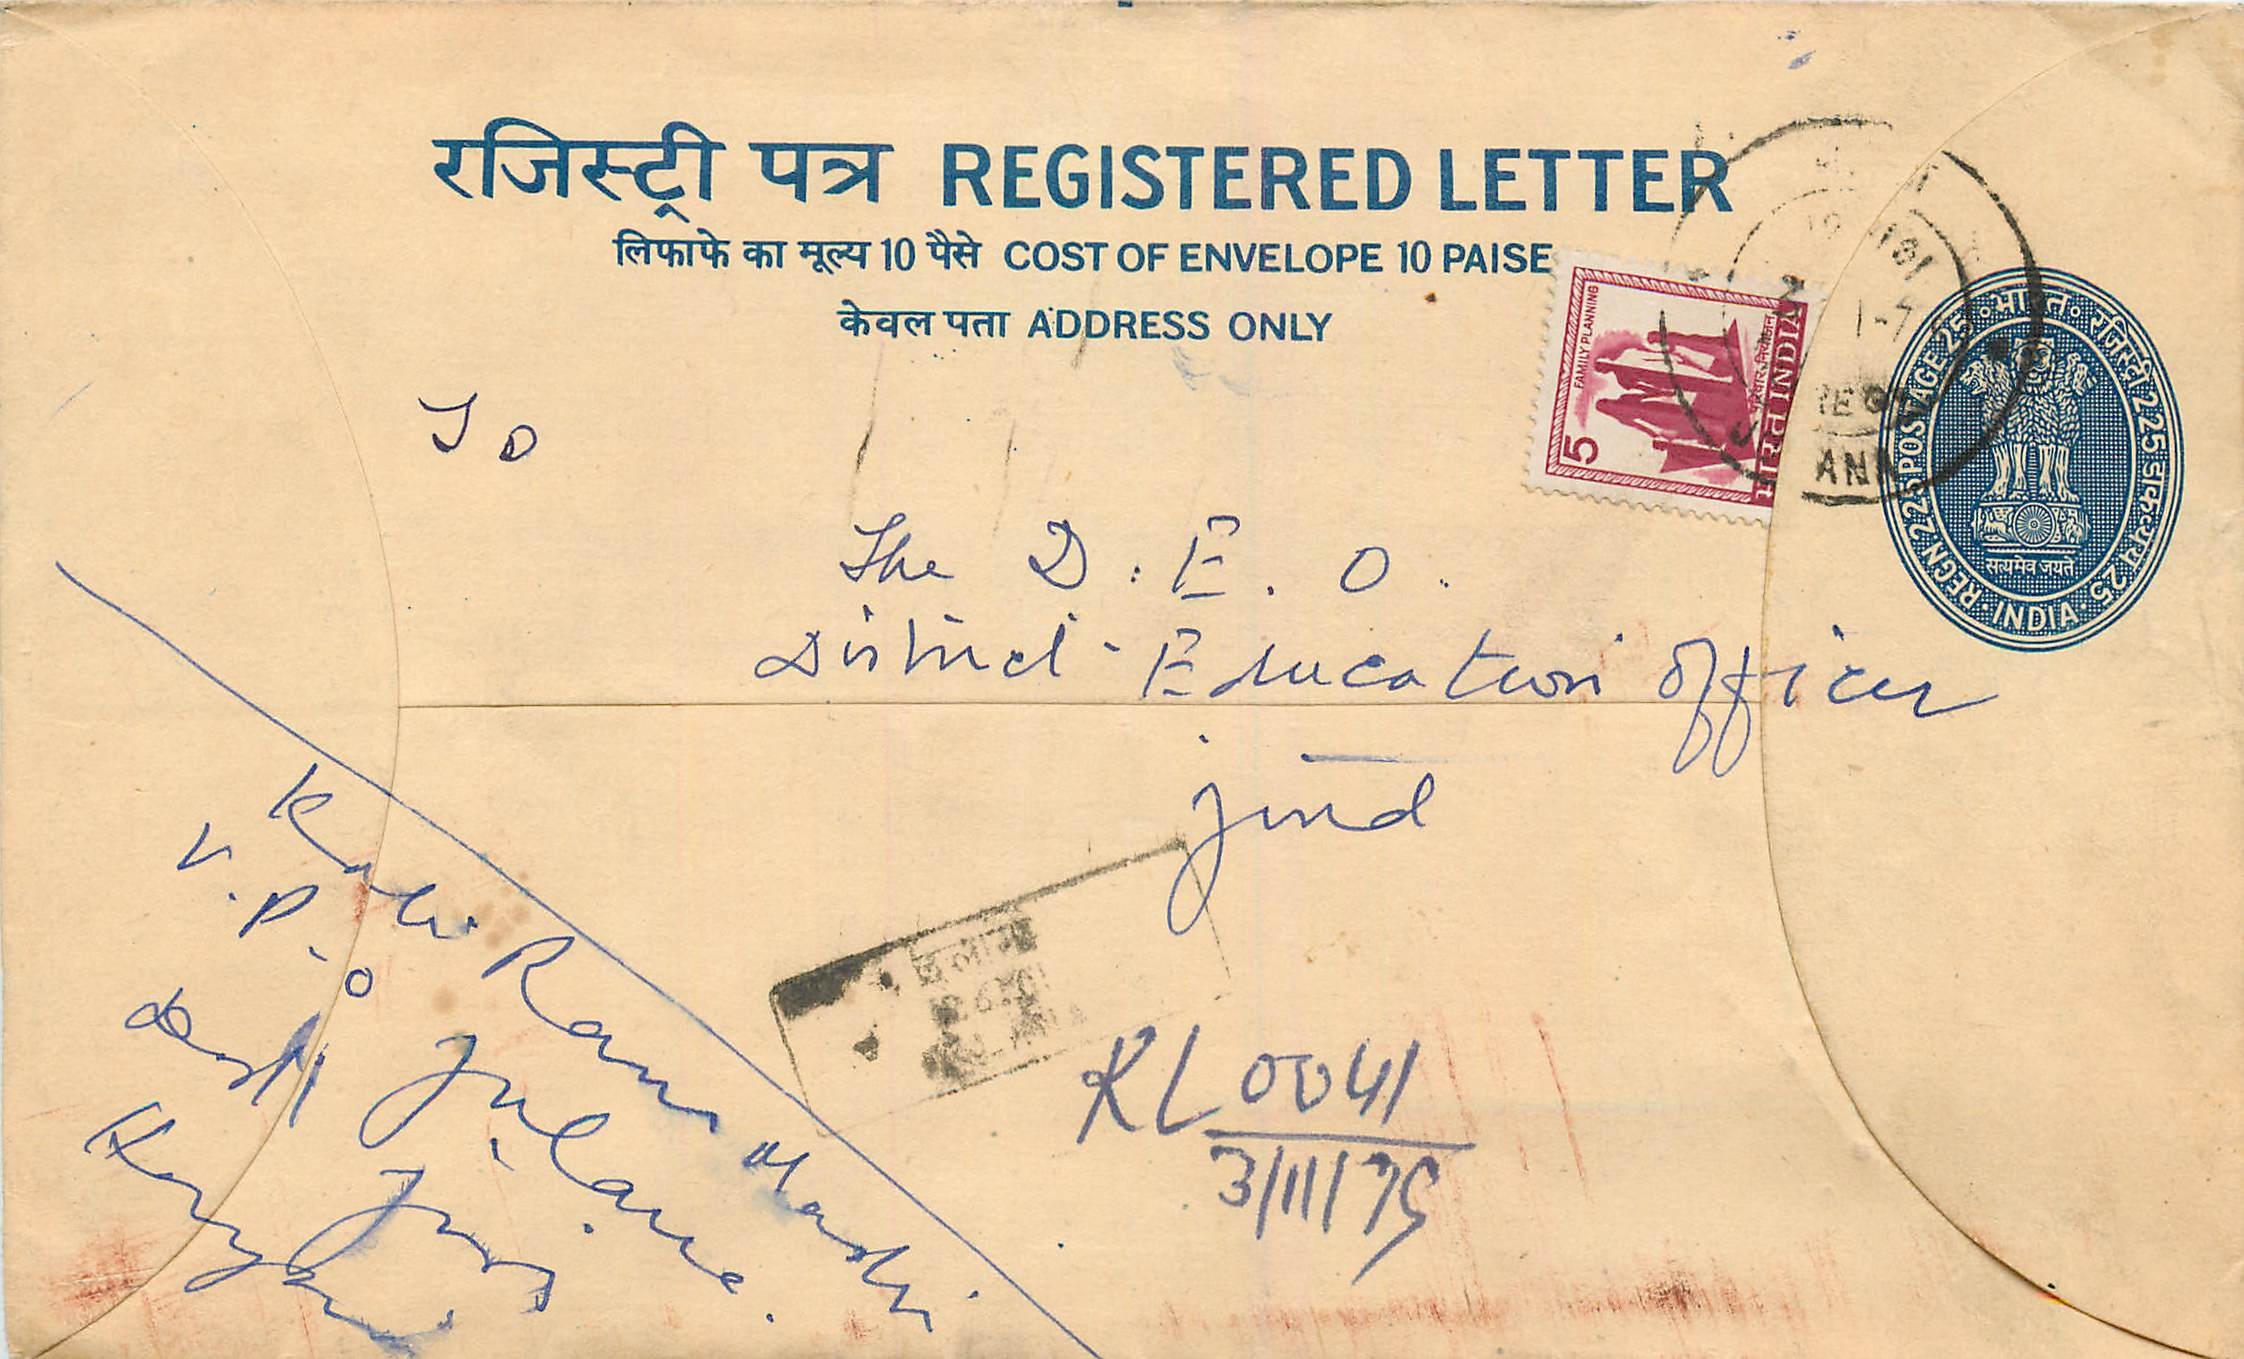 रजिस्ट्री पत्र REGISTERED LETTER
लिफाफे का मूल्य 10 पैसे COST OF ENVELOPE 10 PAISE
केवल पता ADDRESS ONLY
FAMILY PLANNING
5
परिवार नियोजन
भारत INDIA
भारत रजिस्ट्री 225 डाकव्यय 25
REGN 225 POSTAGE 25
सत्यमेव जयते
INDIA
To
The D. E. O.
District Education Officer
Jind
Kali Ram
V. P. O Julana
Distt Jind
RL 0041
3/11/75